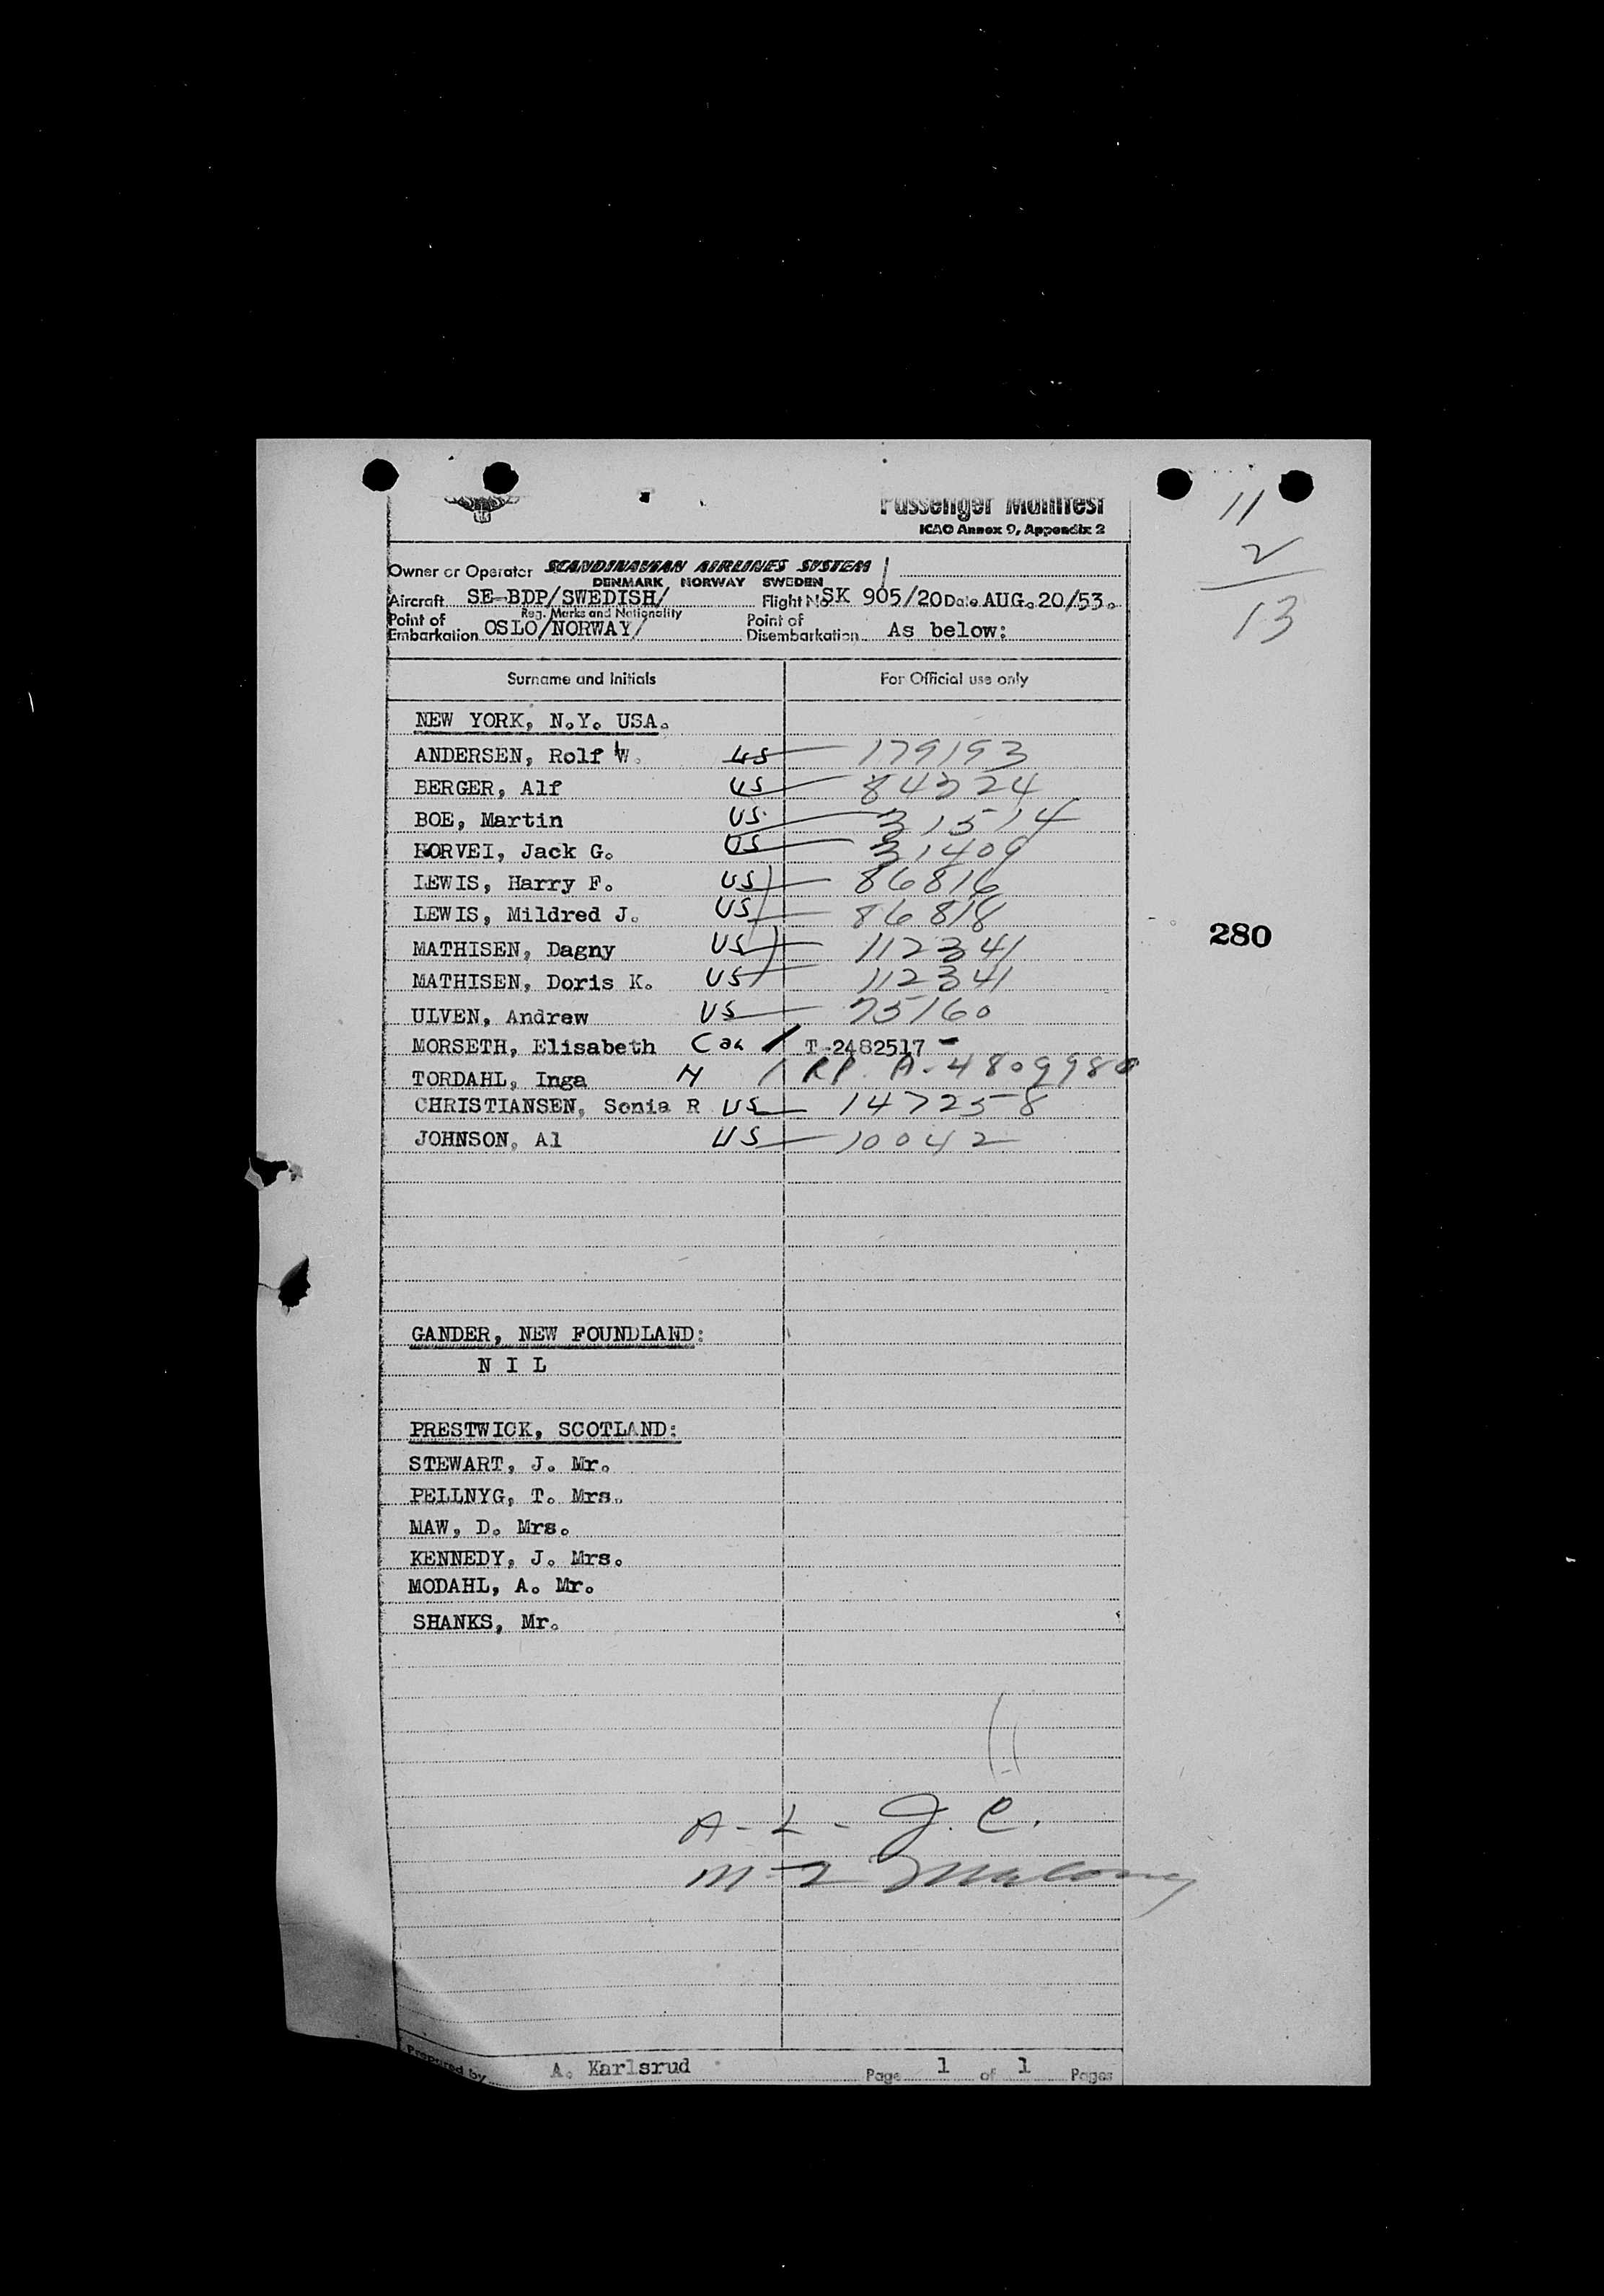 Passenger Manifest
ICAO Annex 9, Appendix 2
11
2
13
Owner or Operator SCANDINAVIAN AIRLINES SYSTEM
DENMARK NORWAY SWEDEN
Aircraft SE-BDP/SWEDISH/ Flight No. SK 905/20 Date AUG. 20/53.
Reg. Marks and Nationality
Point of Embarkation OSLO/NORWAY/ Point of Disembarkation As below:
Surname and Initials For Official use only
NEW YORK, N.Y. USA.
ANDERSEN, Rolf W. US 179193
BERGER, Alf US 84324
BOE, Martin US 31514
HORVEI, Jack G. US 31409
LEWIS, Harry F. US 86816
LEWIS, Mildred J. US 86818
280
MATHISEN, Dagny US 112341
MATHISEN, Doris K. US 112341
ULVEN, Andrew US 75160
MORSETH, Elisabeth Can T-2482517
TORDAHL, Inga N RP. A-4809980
CHRISTIANSEN, Sonia R US 147258
JOHNSON, Al US 10042
GANDER, NEW FOUNDLAND:
N I L
PRESTWICK, SCOTLAND:
STEWART, J. Mr.
PELLNYG, T. Mrs.
MAW, D. Mrs.
KENNEDY, J. Mrs.
MODAHL, A. Mr.
SHANKS, Mr.
A-L- J.C.
M-2
Prepared by A. Karlsrud Page 1 of 1 Pages